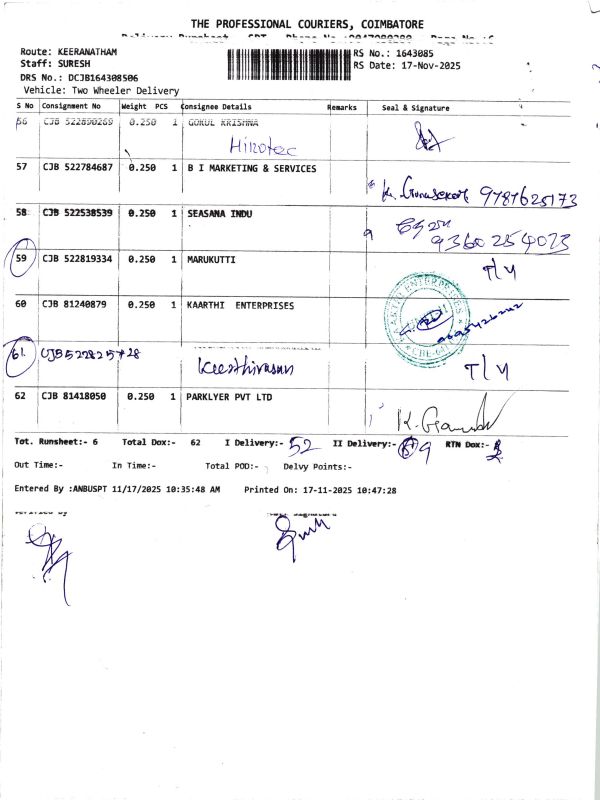 THE PROFESSIONAL COURIERS, COIMBATORE
Route: KEERANATHAM
RS No.: 1643085
Staff: SURESH
RS Date: 17-Nov-2025
DRS No.: DCJB164308506
Vehicle: Two Wheeler Delivery
S No Consignment No Weight PCS Consignee Details Remarks Seal & Signature
56 CJB 522890269 0.250 1 GOKUL KRISHNA
Hirotec
57 CJB 522784687 0.250 1 B I MARKETING & SERVICES
9787625173
58 CJB 522538539 0.250 1 SEASANA INDU
9360254073
59 CJB 522819334 0.250 1 MARUKUTTI T/4
60 CJB 81240879 0.250 1 KAARTHI ENTERPRISES
61. CJB522825728 Keerthivasan T/4
62 CJB 81418050 0.250 1 PARKLYER PVT LTD
Tot. Runsheet:- 6 Total Dox:- 62 I Delivery:- 52 II Delivery:- 9 RTN Dox:-
Out Time:- In Time:- Total POD:- Delvy Points:-
Entered By :ANBUSPT 11/17/2025 10:35:48 AM Printed On: 17-11-2025 10:47:28